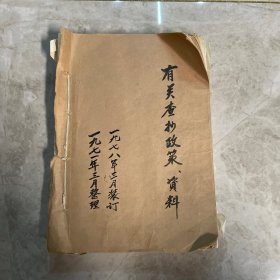 有关查抄政策、资料
一九七八年三月装订
一九七一年三月整理